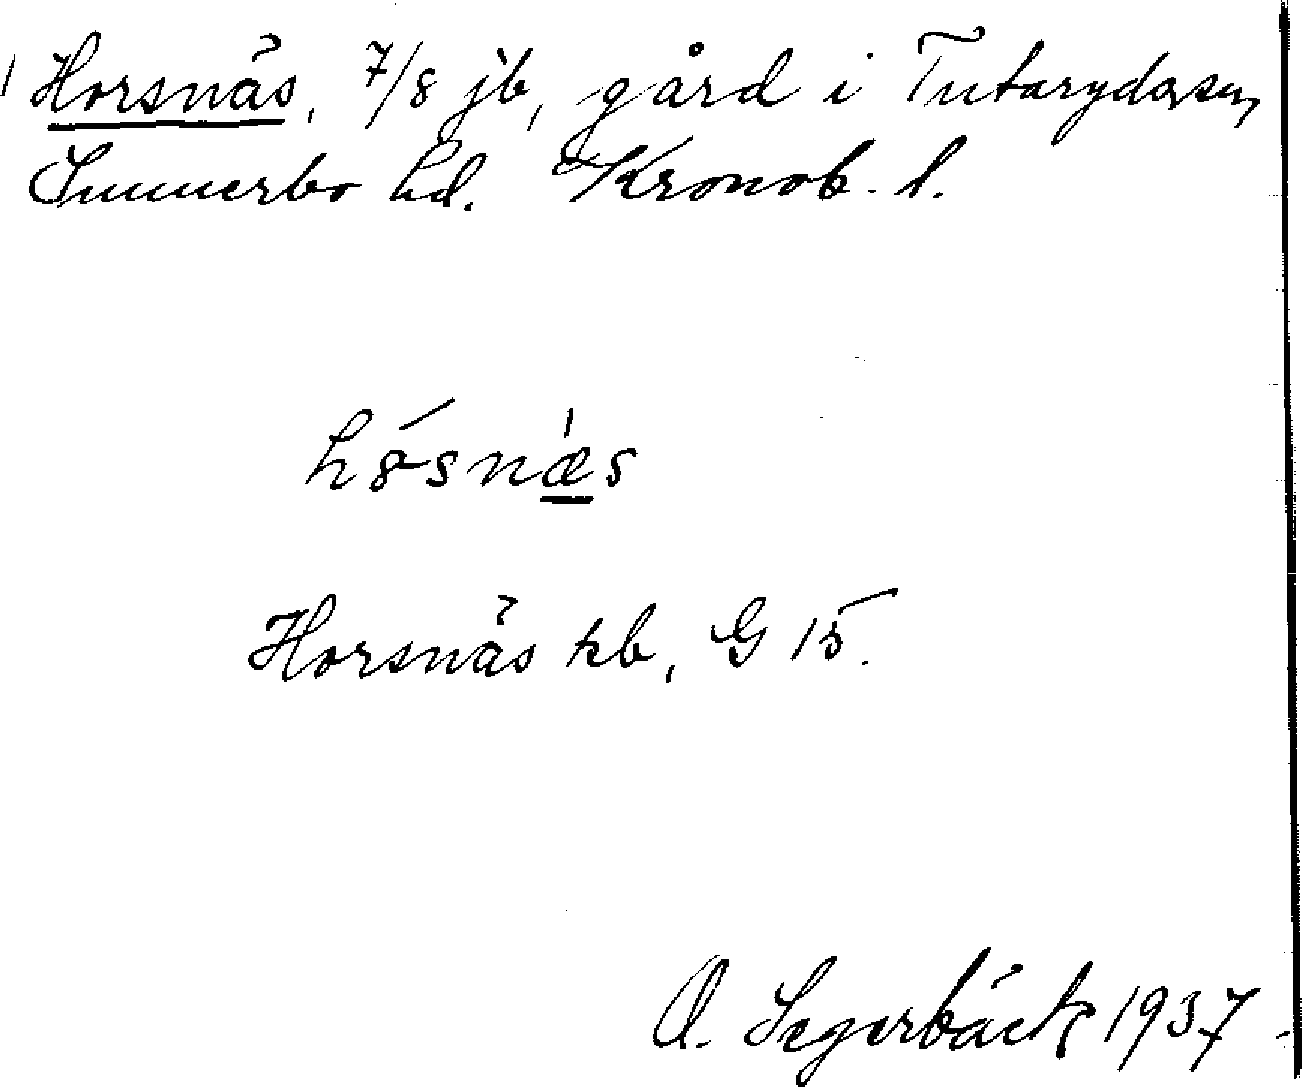 Horsnäs, 7/8 jb, gård i Tutaryds sn,
Sunnerbo hd. Kronob. l.
hósnæ̲s
Horsnäs kb, G 15.
O. Segerbäck 1937